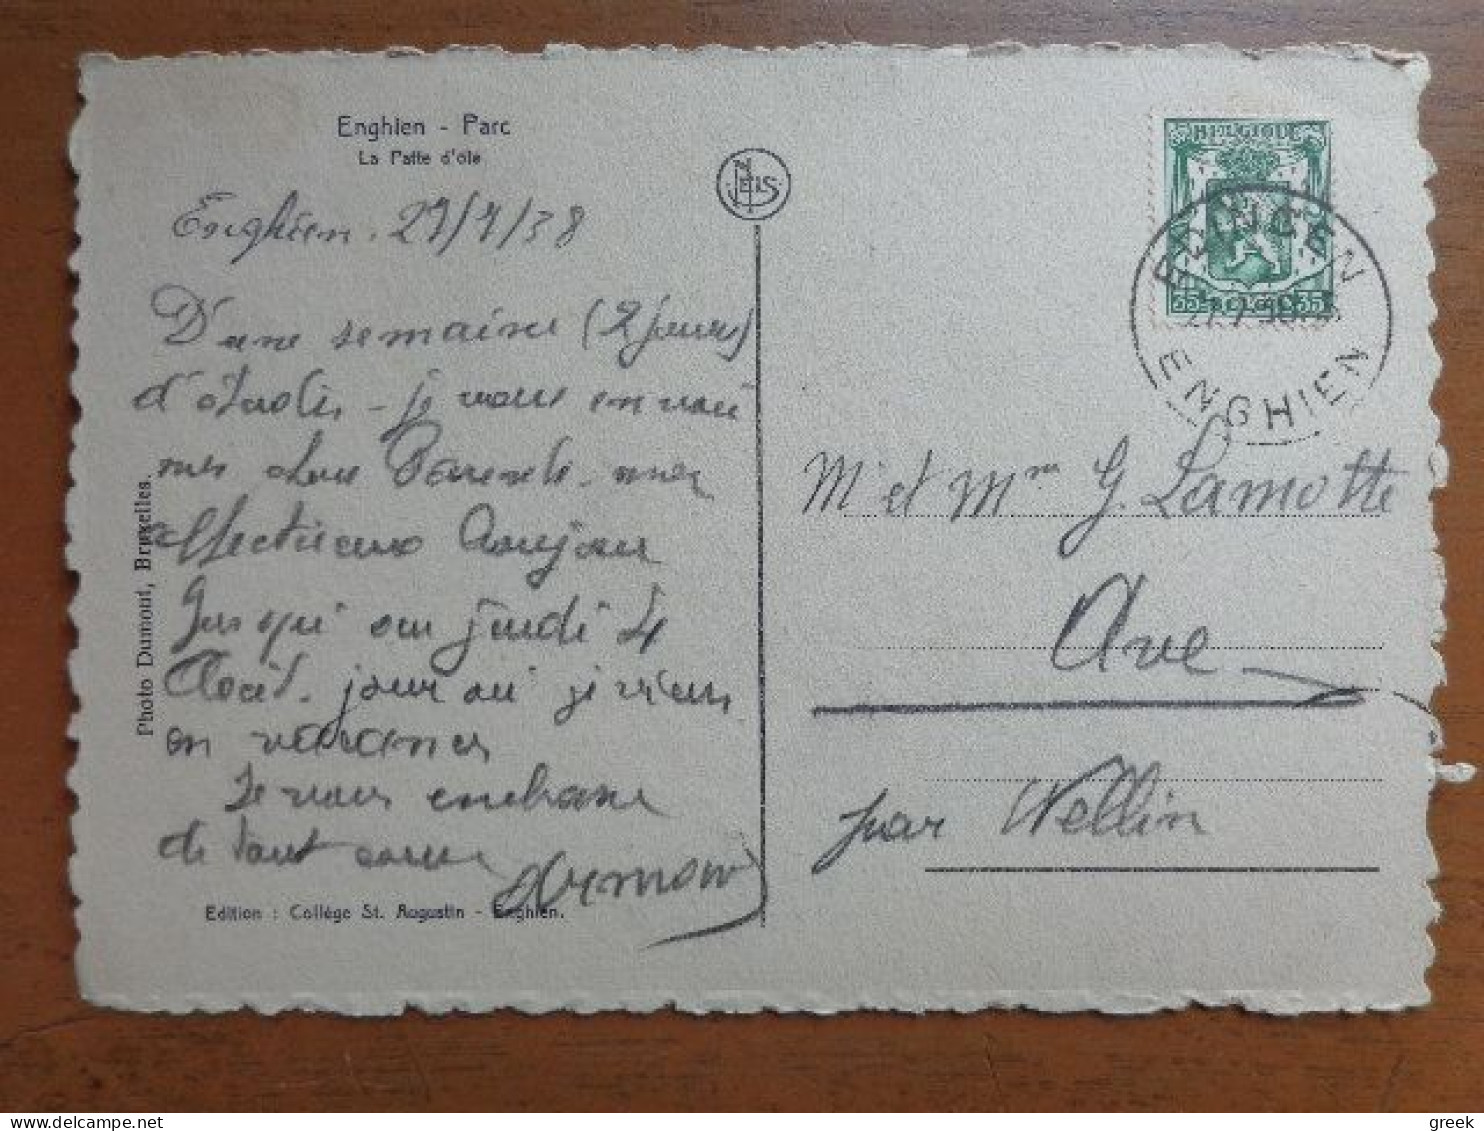 Enghien - Parc
La Patte d'oie
NELS
BELGIQUE
35 BELGIE 35
EDINGEN
ENGHIEN
Enghien. 27/7/38
D'une semaine (2 jours)
d'études - je vous envoie
mes chers Parents. mon
affectueux Bonjour
Jusqu'au jeudi 4
Août. jour où je viens
en vacances
Je vous embrasse
de tout coeur
Photo Dumont, Bruxelles.
Edition : Collège St. Augustin - Enghien.
Mr et Mme G. Lamotte
Ave
par Wellin
greek